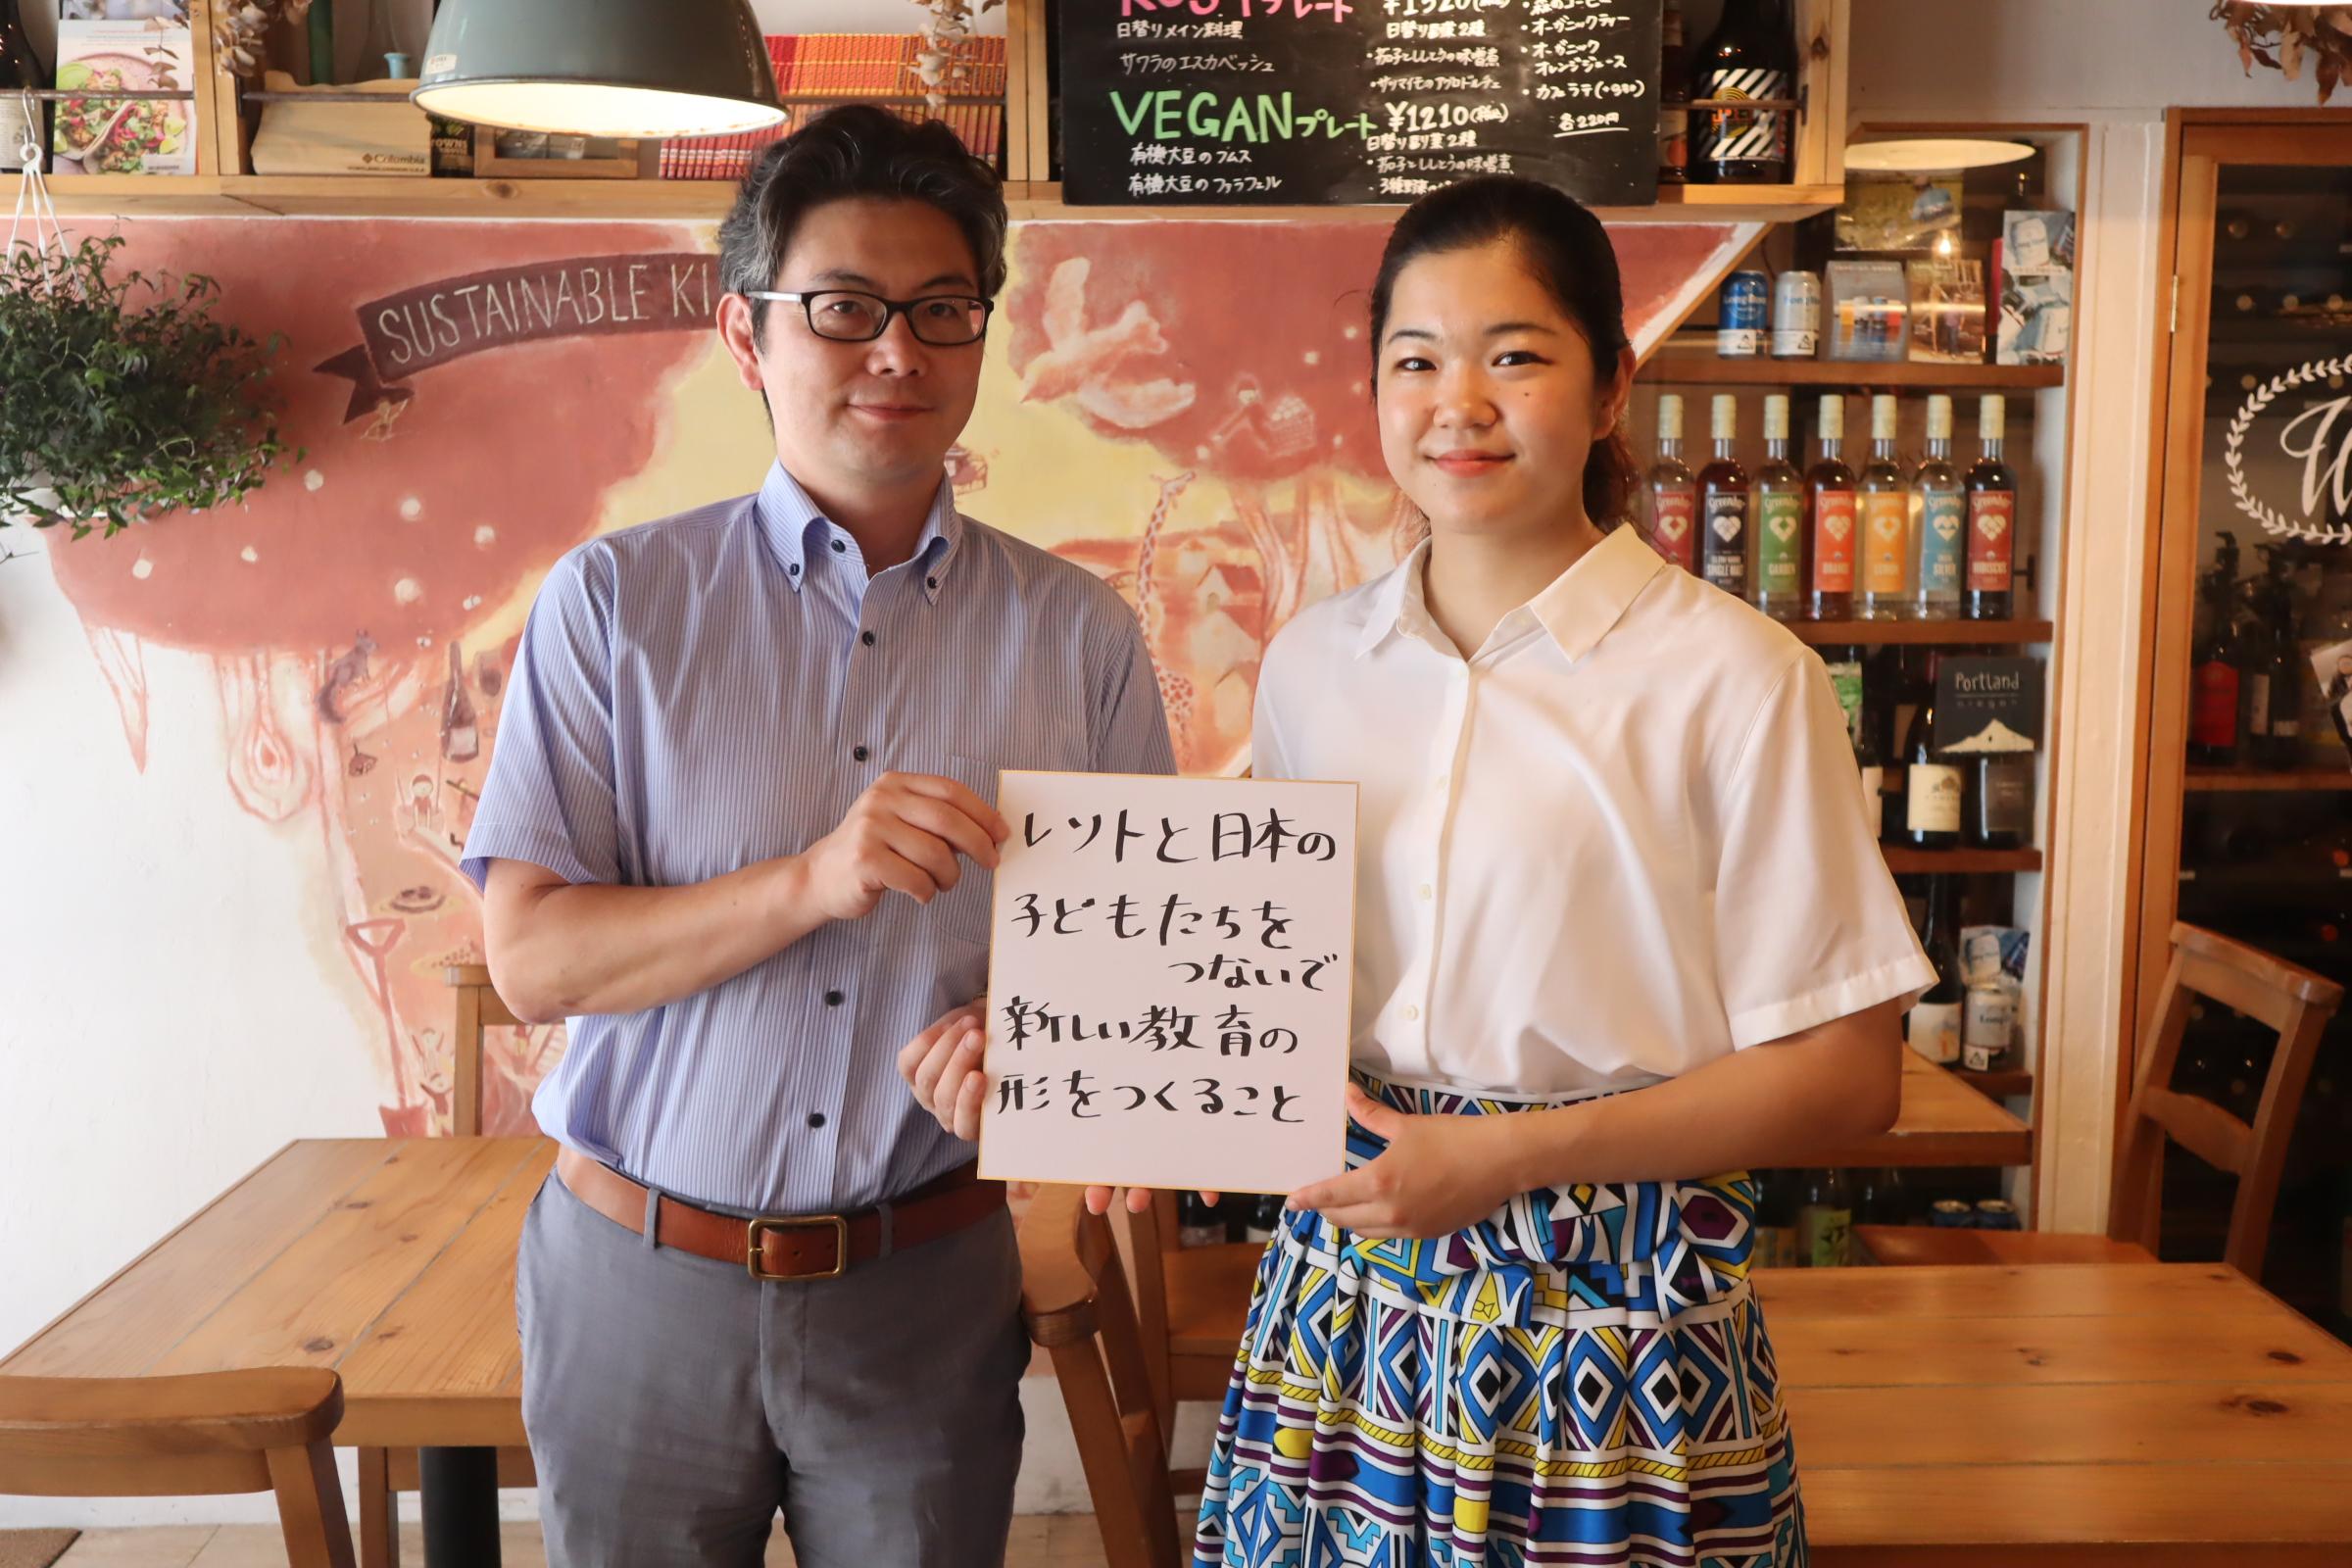 プレート
日替りメイン料理
サワラのエスカベッシュ
日替り副菜2種
・茄子とししとうの味噌煮
・サツマイモのアグロドルチェ
・オーガニックティー
・オーガニック
オレンジジュース
・カフェラテ
各220円
VEGANプレート
¥1210(税込)
有機大豆のフムス
有機大豆のファラフェル
日替り副菜2種
・茄子とししとうの味噌煮
Columbia
SUSTAINABLE KI
レソトと日本の
子どもたちを
つないで
新しい教育の
形をつくること
Portland